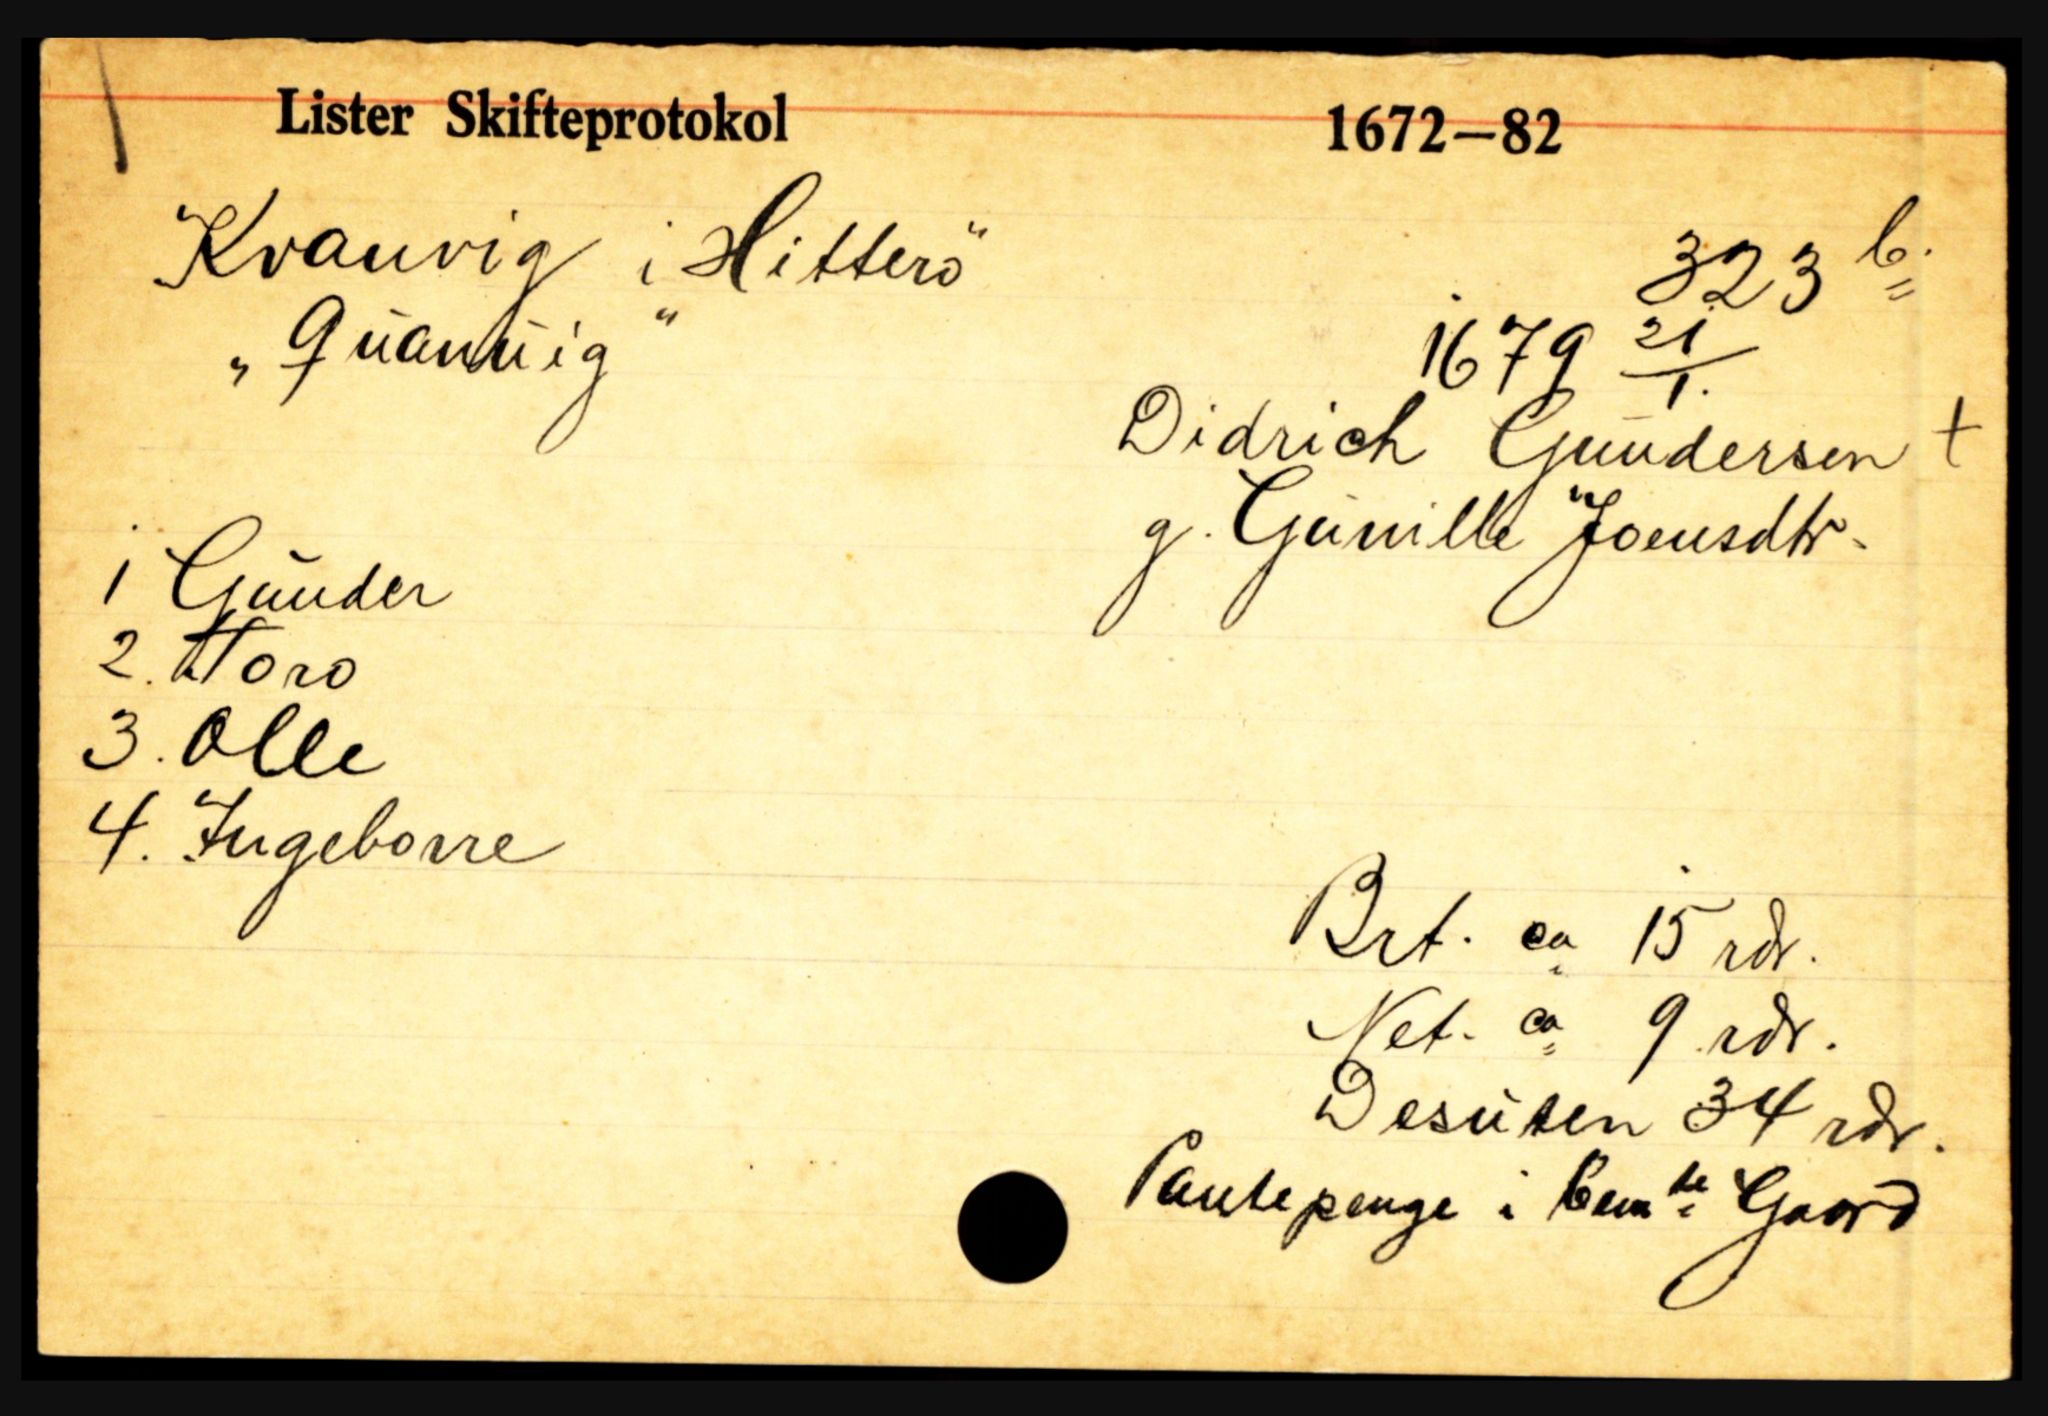 Lister Skifteprotokol 1672–82
Kvanvig i Hitterö"
323 b.
„Quanuig"
1679 21/1.
Didrich Gundersen +
g. Gunille Joensdtr.
1 Gunder
2. Toro
3. Olle
4. Ingeborre
Brt. ca 15 rdr.
Net. ca 9 rdr.
Desuten 34 rdr.
Pantepenge i bemte Gaard